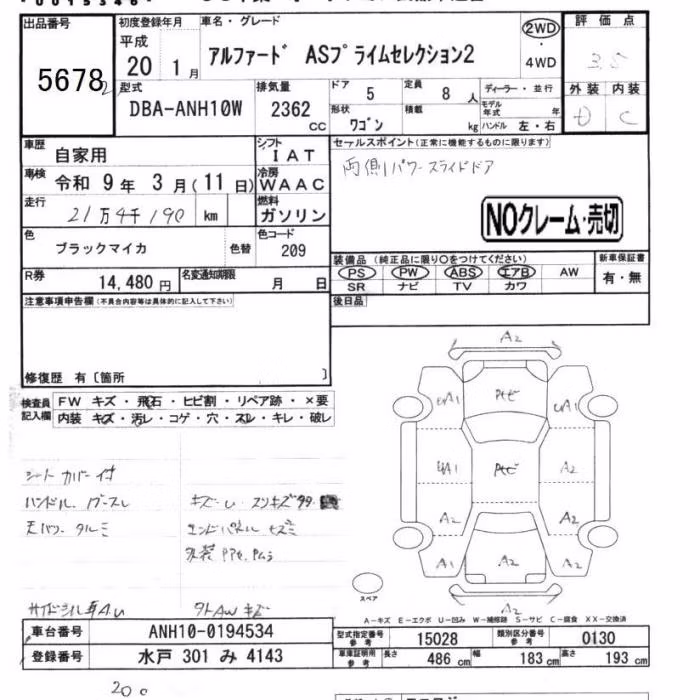 出品番号 初度登録年月 車名・グレード 2WD 評価点
5678 平成 20 1月 アルファード ASプライムセレクション2 ・ 3.5
4WD
型式 排気量 ドア 5 定員 8人 ディーラー・並行 外装 内装
DBA-ANH10W 2362 CC 形状 ワゴン 積載 kg モデル年式 年 D C
ハンドル 左・右
車歴 自家用 シフト IAT セールスポイント(正常に機能するものに限ります)
車検 令和 9年 3月(11日) 冷房 WAAC 両側パワースライドドア
走行 21万4千190 km 燃料 ガソリン NOクレーム・売切
色 ブラックマイカ 色替 色コード 209
装備品 (純正品に限り○をつけてください) 新車保証書
R券 14,480円 名変通知期限 月 日 PS PW ABS エアB AW 有・無
SR ナビ TV カワ
注意事項申告欄(不具合内容等は具体的に記入して下さい) 後日品
修復歴 有〔箇所 〕
検査員記入欄 FW キズ・飛石・ヒビ割・リペア跡・×要
内装 キズ・汚レ・コゲ・穴・スレ・キレ・破レ
A2
A1 PセE A1
A1 PセE A2
A2 A2
A1 A2 A2
A2
シートカバー付
ハンドル、
キズ・U
スペア
A-キズ E-エクボ U-凹み W-補修跡 S-サビ C-腐食 XX-交換済
車台番号 ANH10-0194534 型式指定番号 参考 15028 類別区分番号 参考 0130
登録番号 水戸 301 み 4143 車庫証明用 参考 長さ 486 cm 幅 183 cm 高さ 193 cm
200